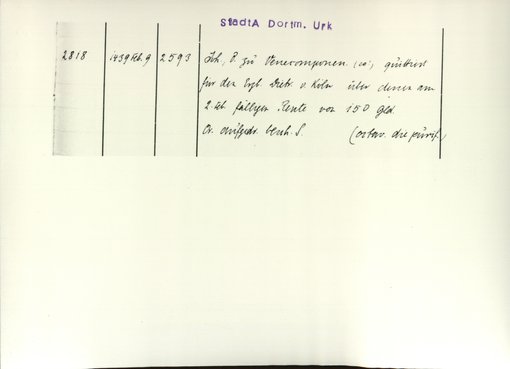 StadtA Dortm. Urk
2818 1439 Feb. 9 2593 Joh., B. zu Venecomponen. (co), quittiert
für den Erzb. Dietr. v. Köln über dienen am
2. Feb. fälligen Rente von 150 Gld.
Or. aufgedr. besch. S. (octav. die purif.)